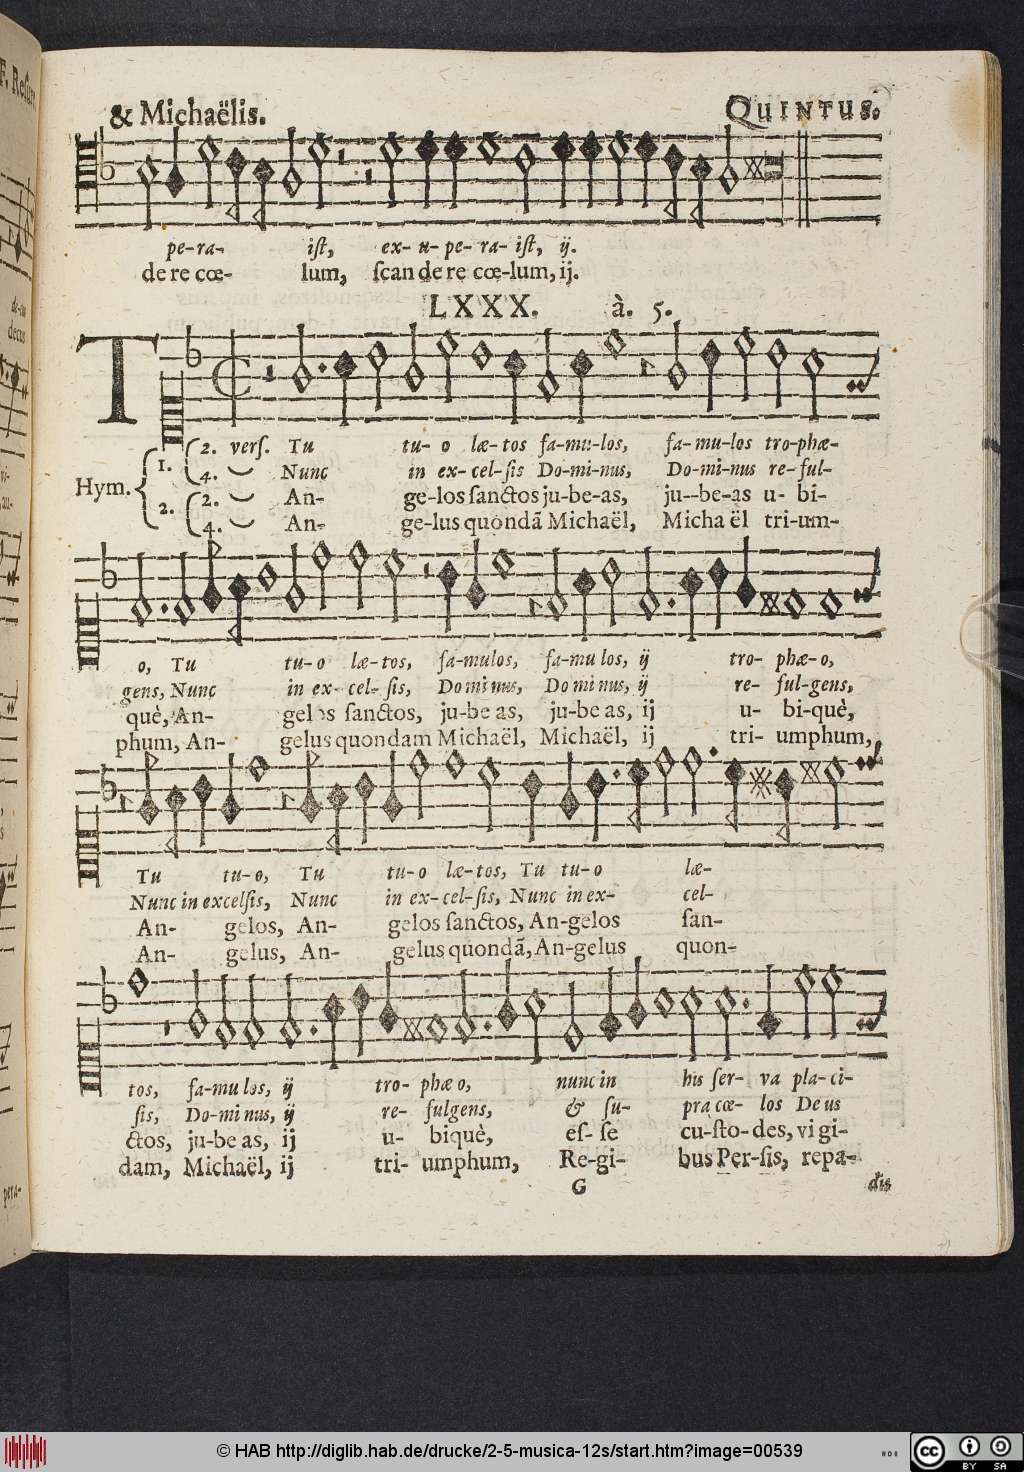 & Michaëlis. QUINTUS.
pe-ra- iſt, ex- u- pe- ra- iſt, ij.
de re cœ- lum, ſcan de re cœ-lum, ij.
LXXX. à. 5.
T
2. verſ. Tu tu- o læ- tos fa-mu-los, fa-mu-los tro-phæ-
1. 4. Nunc in ex-cel-ſis Do-mi-nus, Do-mi-nus re-ful-
Hym. 2. An- ge-los ſanctos ju-be-as, ju--be-as u- bi-
2. 4. An- ge-lus quondã Michaël, Micha ël tri-um-
o, Tu tu-o læ-tos, fa-mulos, fa-mu los, ij tro- phæ-o,
gens, Nunc in ex- cel- ſis, Do mi nus, Do mi nus, ij re- ful-gens,
què, An- gelos ſanctos, ju-be as, ju-be as, ij u- bi-què,
phum, An- gelus quondam Michaël, Michaël, ij tri- umphum,
Tu tu-o, Tu tu-o læ-tos, Tu tu-o læ-
Nunc in excelſis, Nunc in ex-cel-ſis, Nunc in ex- cel-
An- gelos, An- gelos ſanctos, An-gelos ſan-
An- gelus, An- gelus quondã, An-gelus quon-
tos, fa-mu los, ij tro- phæ o, nunc in his ſer- va pla-ci-
ſis, Do-mi nus, ij re- fulgens, & ſu- pra cœ- los De us
ctos, ju-be as, ij u- biquè, eſ- ſe cu-ſto-des, vi gi-
dam, Michaël, ij tri- umphum, Re-gi- bus Per-ſis, repa-
G dis
© HAB http://diglib.hab.de/drucke/2-5-musica-12s/start.htm?image=00539
cc BY SA